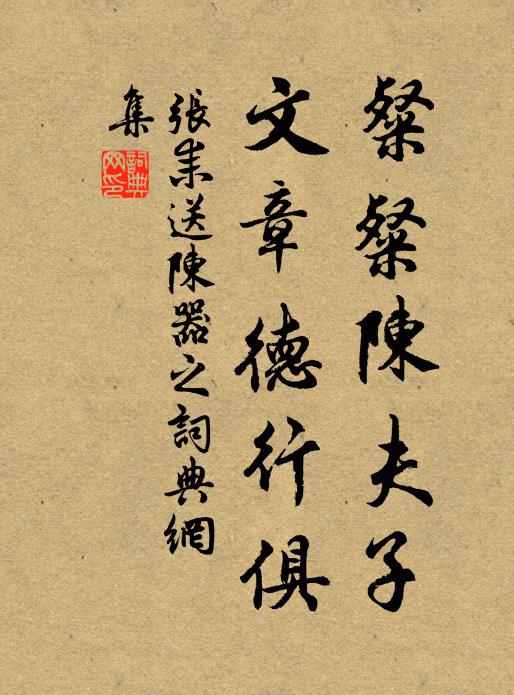 粲粲陳夫子
文章德行俱
張耒送陳器之詞典網
集
詞典
网印